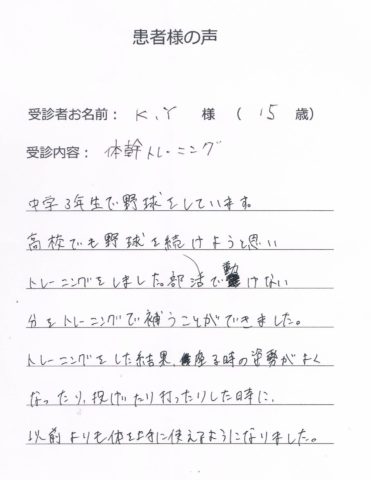 患者様の声
受診者お名前： K.Y 様 （ 15 歳）
受診内容： 体幹トレーニング
中学3年生で野球をしています。
高校でも野球を続けようと思い
トレーニングをしました。部活で動けない
分をトレーニングで補うことができました。
トレーニングをした結果、座る時の姿勢がよく
なったり、投げたり打ったりした時に、
以前よりも体を上手に使えるようになりました。